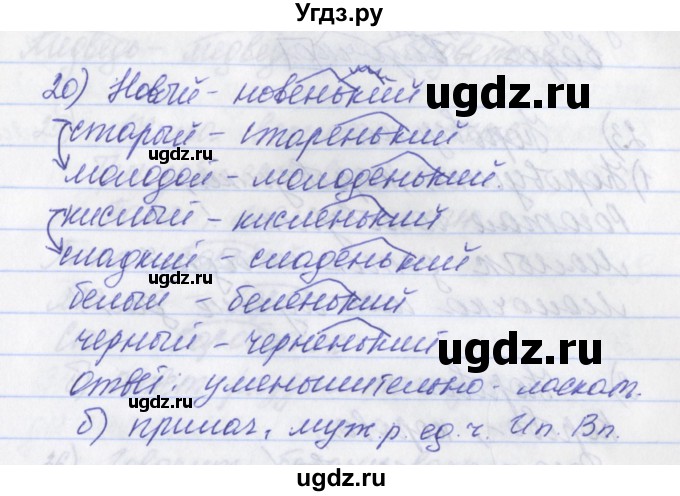 Угдз.ру
20) Новый - новенький
старый - старенький
молодой - молоденький.
кислый - кисленький
сладкий - сладенький
белый - беленький
черный - черненький
ответ: уменьшительно - ласкат.
б) прилаг, муж р. ед. ч. Ип. Вп.
ugdz.ru
ugdz.ru
ugdz.ru
ugdz.ru
ugdz.ru
ugdz.ru
ugdz.ru
ugdz.ru